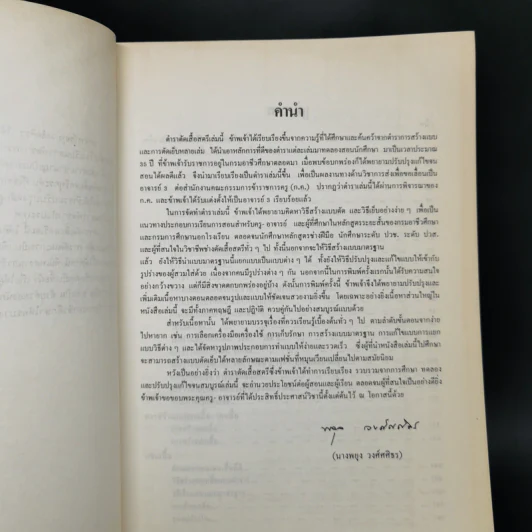 คำนำ
ตำราตัดเสื้อสตรีเล่มนี้ ข้าพเจ้าได้เรียบเรียงขึ้นจากความรู้ที่ได้ศึกษาและค้นคว้าจากตำราการสร้างแบบ
และการตัดเย็บหลายเล่ม ได้นำเอาหลักการที่ดีของตำราแต่ละเล่มมาทดลองสอนนักศึกษา มาเป็นเวลาประมาณ
35 ปี ที่ข้าพเจ้ารับราชการอยู่ในกรมอาชีวศึกษาตลอดมา เมื่อพบข้อบกพร่องก็ได้พยายามปรับปรุงแก้ไขจน
สอนได้ผลดีแล้ว จึงนำมาเรียบเรียงเป็นตำราเล่มนี้ขึ้น เพื่อเป็นผลงานทางด้านวิชาการส่งเพื่อขอเลื่อนเป็น
อาจารย์ 3 ต่อสำนักงานคณะกรรมการข้าราชการครู (ก.ค.) ปรากฏว่าตำราเล่มนี้ได้ผ่านการพิจารณาของ
ก.ค. และข้าพเจ้าได้รับแต่งตั้งให้เป็นอาจารย์ 3 เรียบร้อยแล้ว
ในการจัดทำตำราเล่มนี้ ข้าพเจ้าได้พยายามคิดหาวิธีสร้างแบบตัด และวิธีเย็บอย่างง่าย ๆ เพื่อเป็น
แนวทางประกอบการเรียนการสอนสำหรับครู- อาจารย์ และผู้ที่ศึกษาในหลักสูตรระยะสั้นของกรมอาชีวศึกษา
และกรมการศึกษานอกโรงเรียน ตลอดจนนักศึกษาหลักสูตรช่างฝีมือ นักศึกษาระดับ ปวช. ระดับ ปวส.
และผู้ที่สนใจในวิชาชีพช่างตัดเสื้อสตรีทั่ว ๆ ไป ทั้งนี้นอกจากจะให้วิธีสร้างแบบมาตรฐาน
แล้ว ยังให้วิธีนำแบบมาตรฐานนี้แยกแบบเป็นแบบต่าง ๆ ได้ ทั้งยังให้วิธีปรับปรุงและแก้ไขแบบให้เข้ากับ
รูปร่างของผู้สวมใส่ด้วย เนื่องจากคนมีรูปร่างต่าง ๆ กัน นอกจากนี้ในการพิมพ์ครั้งแรกนั้นได้รับความสนใจ
อย่างกว้างขวาง แต่ก็มีสิ่งขาดตกบกพร่องอยู่บ้าง ดังนั้นการพิมพ์ครั้งนี้ ข้าพเจ้าจึงได้พยายามปรับปรุงและ
เพิ่มเติมเนื้อหาบางตอนตลอดจนรูปเล่มแบบให้ชัดเจนสวยงามยิ่งขึ้น โดยเฉพาะอย่างยิ่งเนื้อหาส่วนใหญ่ใน
หนังสือเล่มนี้ จะมีทั้งภาคทฤษฎี และปฏิบัติ ควบคู่กันไปอย่างสมบูรณ์แบบด้วย
สำหรับเนื้อหานั้น ได้พยายามบรรจุเรื่องที่ควรเรียนรู้เบื้องต้นทั่ว ๆ ไป ตามลำดับขั้นตอนจากง่าย
ไปหายาก เช่น การเลือกเครื่องมือเครื่องใช้ การเก็บรักษา การสร้างแบบมาตรฐาน การแก้ไขแบบการแยก
แบบวิธีต่าง ๆ และได้จัดหารูปภาพประกอบการทำแบบให้ง่ายและรวดเร็ว ซึ่งผู้ที่นำหนังสือเล่มนี้ไปศึกษา
จะสามารถสร้างแบบตัดเย็บได้หลายลักษณะตามแฟชั่นที่หมุนเวียนเปลี่ยนไปตามสมัยนิยม
หวังเป็นอย่างยิ่งว่า ตำราตัดเสื้อสตรีซึ่งข้าพเจ้าได้ทำการเรียบเรียง รวบรวมจากการศึกษา ทดลอง
และปรับปรุงแก้ไขจนสมบูรณ์เล่มนี้ จะอำนวยประโยชน์ต่อผู้สอนและผู้เรียน ตลอดจนผู้ที่สนใจเป็นอย่างดียิ่ง
ข้าพเจ้าขอขอบพระคุณครู- อาจารย์ที่ได้ประสิทธิ์ประศาสน์วิชานี้ตั้งแต่ต้นไว้ ณ โอกาสนี้ด้วย
(นางพยุง วงศ์ศศิธร)